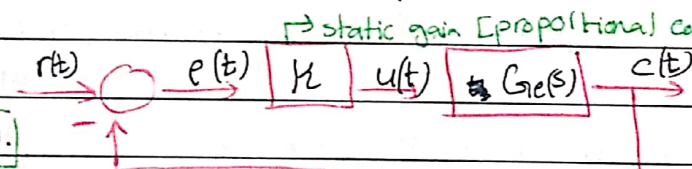 ↱ static gain [proportional co
r(t) e(t) K u(t) Ge(s) c(t)
-
.]